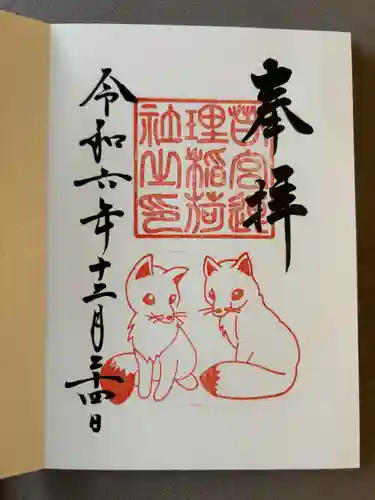 奉拝
宮道
理稲荷
社之印
令和六年十二月二十四日